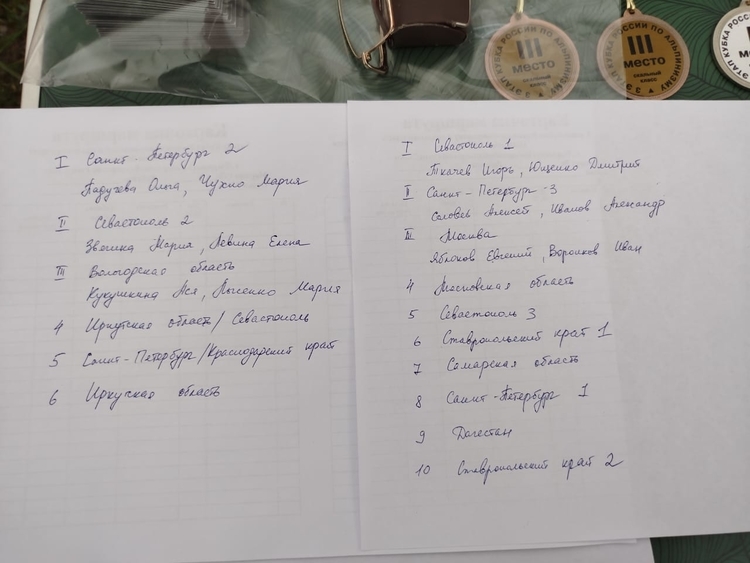 III
место
скальный класс
3 ЭТАП КУБКА РОССИИ ПО АЛЬПИНИЗМУ
III
место
скальный класс
3 ЭТАП КУБКА РОССИИ ПО АЛЬПИНИЗМУ
I Санкт-Петербург 2
Падучева Ольга, Чухно Мария
II Севастополь 2
Звягина Мария, Левина Елена
III Вологодская область
Кукушкина Ася, Лысенко Мария
4 Иркутская область/Севастополь
5 Санкт-Петербург/Краснодарский край
6 Иркутская область
I Севастополь 1
Ткачев Игорь, Ющенко Дмитрий
II Санкт-Петербург-3
Соловей Алексей, Иванов Александр
III Москва
Яблоков Евгений, Воронков Иван
4 Московская область
5 Севастополь 3
6 Ставропольский край 1
7 Самарская область
8 Санкт-Петербург 1
9 Дагестан
10 Ставропольский край 2